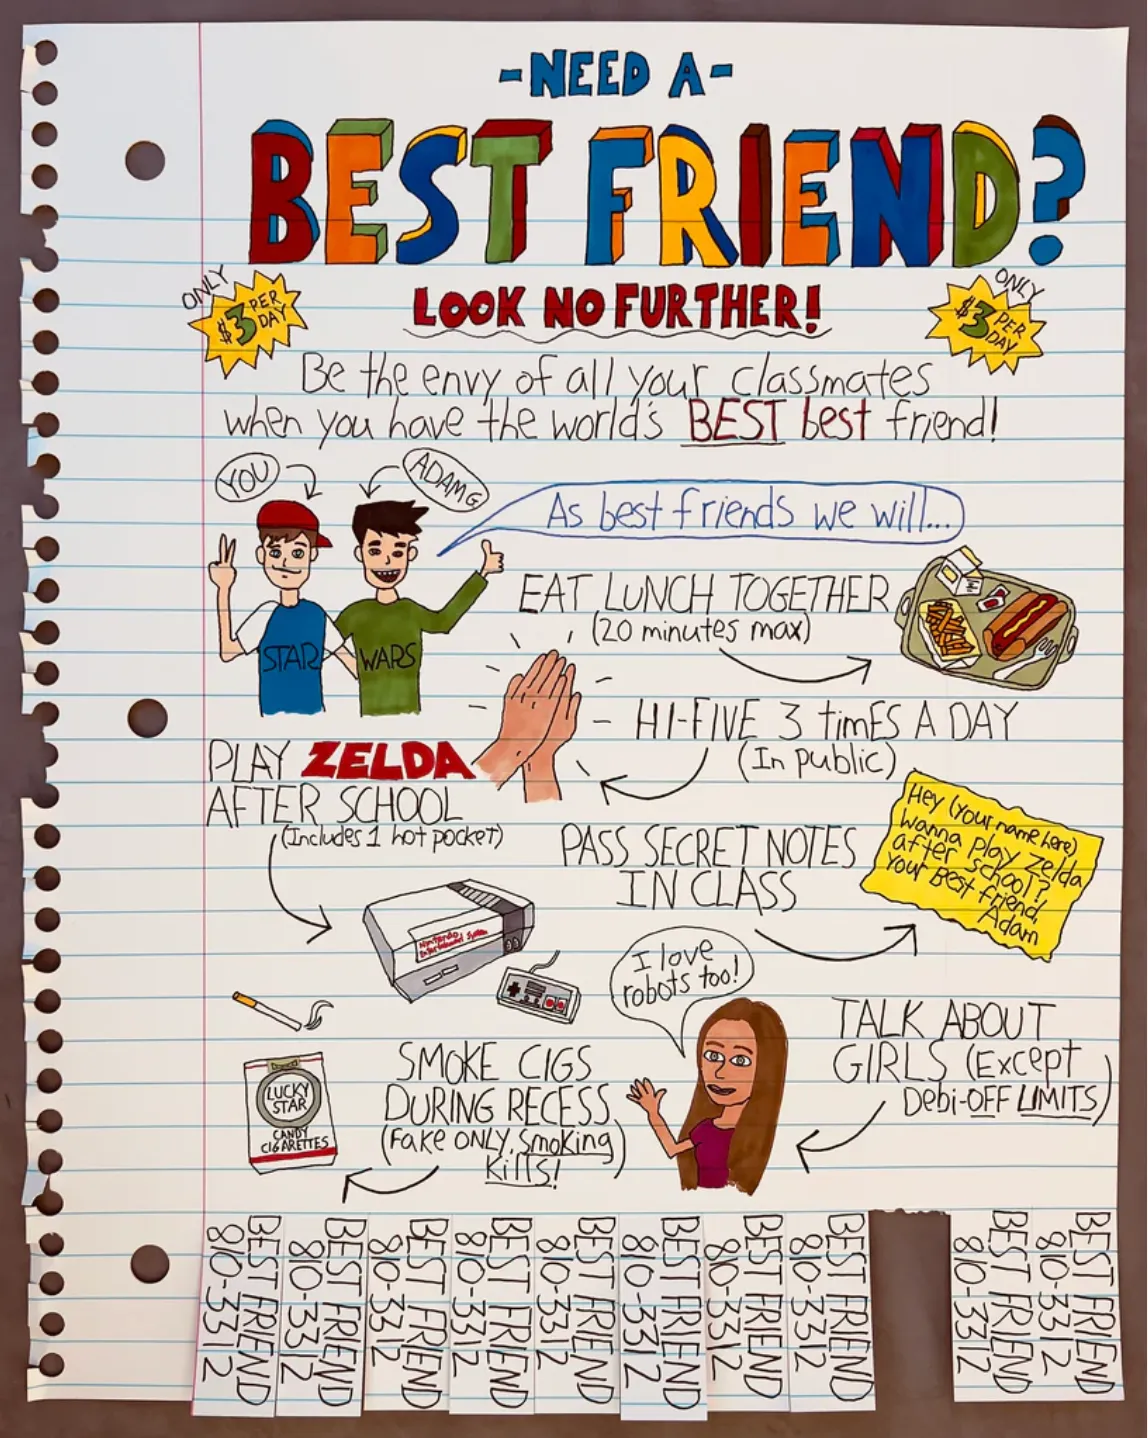 -NEED A-
BEST FRIEND?
ONLY
$3 PER DAY
LOOK NO FURTHER!
ONLY
$3 PER DAY
Be the envy of all your classmates
when you have the world's BEST best friend!
YOU
ADAM G
As best friends we will...
STAR
WARS
EAT LUNCH TOGETHER
(20 minutes max)
HI-FIVE 3 timES A DAY
(In public)
PLAY ZELDA
AFTER SCHOOL
(Includes 1 hot pocket)
Nintendo
Entertainment System
PASS SECRET NOTES
IN CLASS
Hey (Your name here)
wanna play Zelda
after school?
Your Best friend,
Adam
I love
robots too!
TALK ABOUT
GIRLS (Except
Debi-OFF LIMITS)
SMOKE CIGS
DURING RECESS
(Fake ONLY, Smoking
Kills!)
LUCKY
STAR
CANDY
CIGARETTES
BEST FRIEND
810-3312
BEST FRIEND
810-3312
BEST FRIEND
810-3312
BEST FRIEND
810-3312
BEST FRIEND
810-3312
BEST FRIEND
810-3312
BEST FRIEND
810-3312
BEST FRIEND
810-3312
BEST FRIEND
810-3312
BEST FRIEND
810-3312